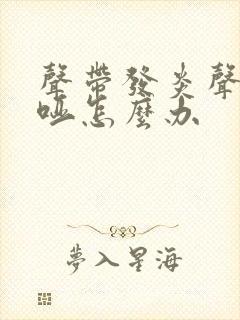 聲帶發炎聲
啞怎麼办
夢入星海